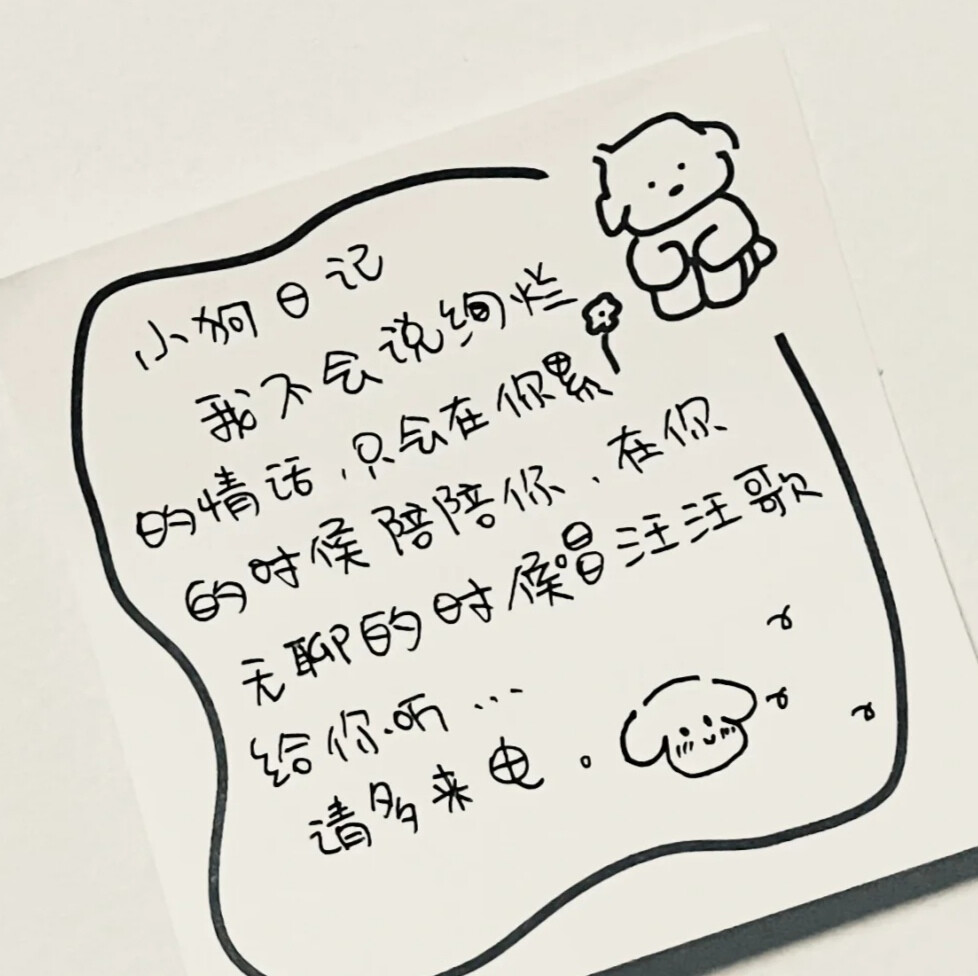 小狗日记
我不会说绚烂
的情话，只会在你累
的时候陪陪你、在你
无聊的时候唱汪汪歌
给你听…
请多来电。